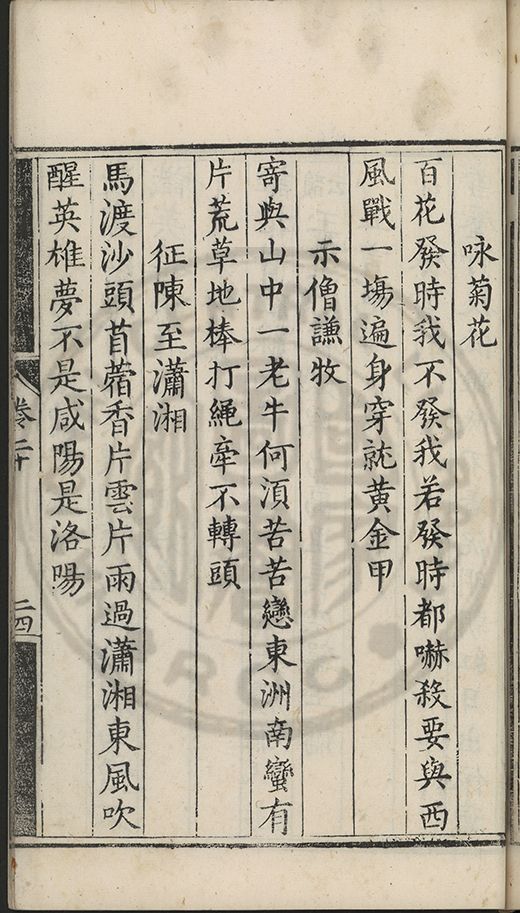 咏菊花
百花發時我不發我若發時都嚇殺要與西
風戰一塲遍身穿就黄金甲
示僧謙牧
寄與山中一老牛何湏苦苦戀東洲南蠻有
片荒草地棒打繩牽不轉頭
征陳至瀟湘
馬渡沙頭苜蓿香片雲片雨過瀟湘東風吹
醒英雄夢不是咸陽是洛陽
卷二十
二四